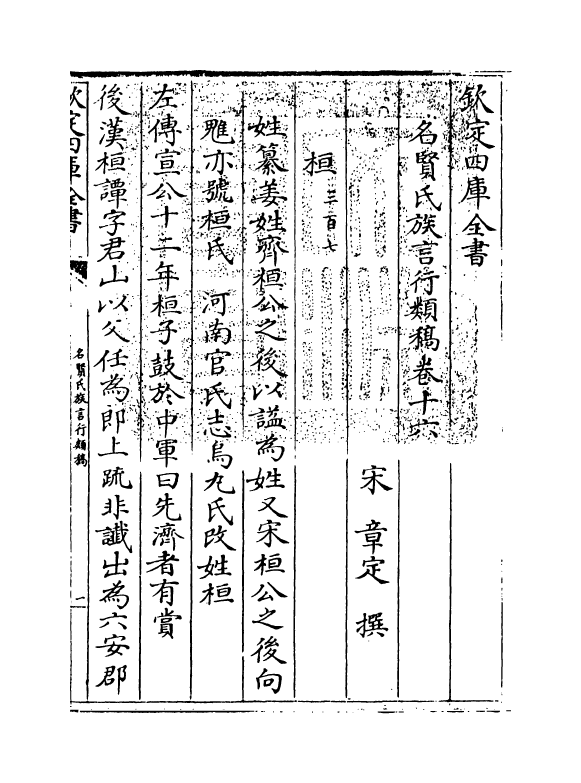 欽定四庫全書
名賢氏族言行類稿卷十六
宋 章定 撰
桓 三百七
姓纂姜姓齊桓公之後以諡為姓又宋桓公之後向
魋亦號桓氏 河南官氏志烏九氏改姓桓
左傳宣公十二年桓子鼓於中軍曰先濟者有賞
後漢桓譚字君山以父任為郎上疏非讖出為六安郡
欽定四庫全書
名賢氏族言行類稿
一